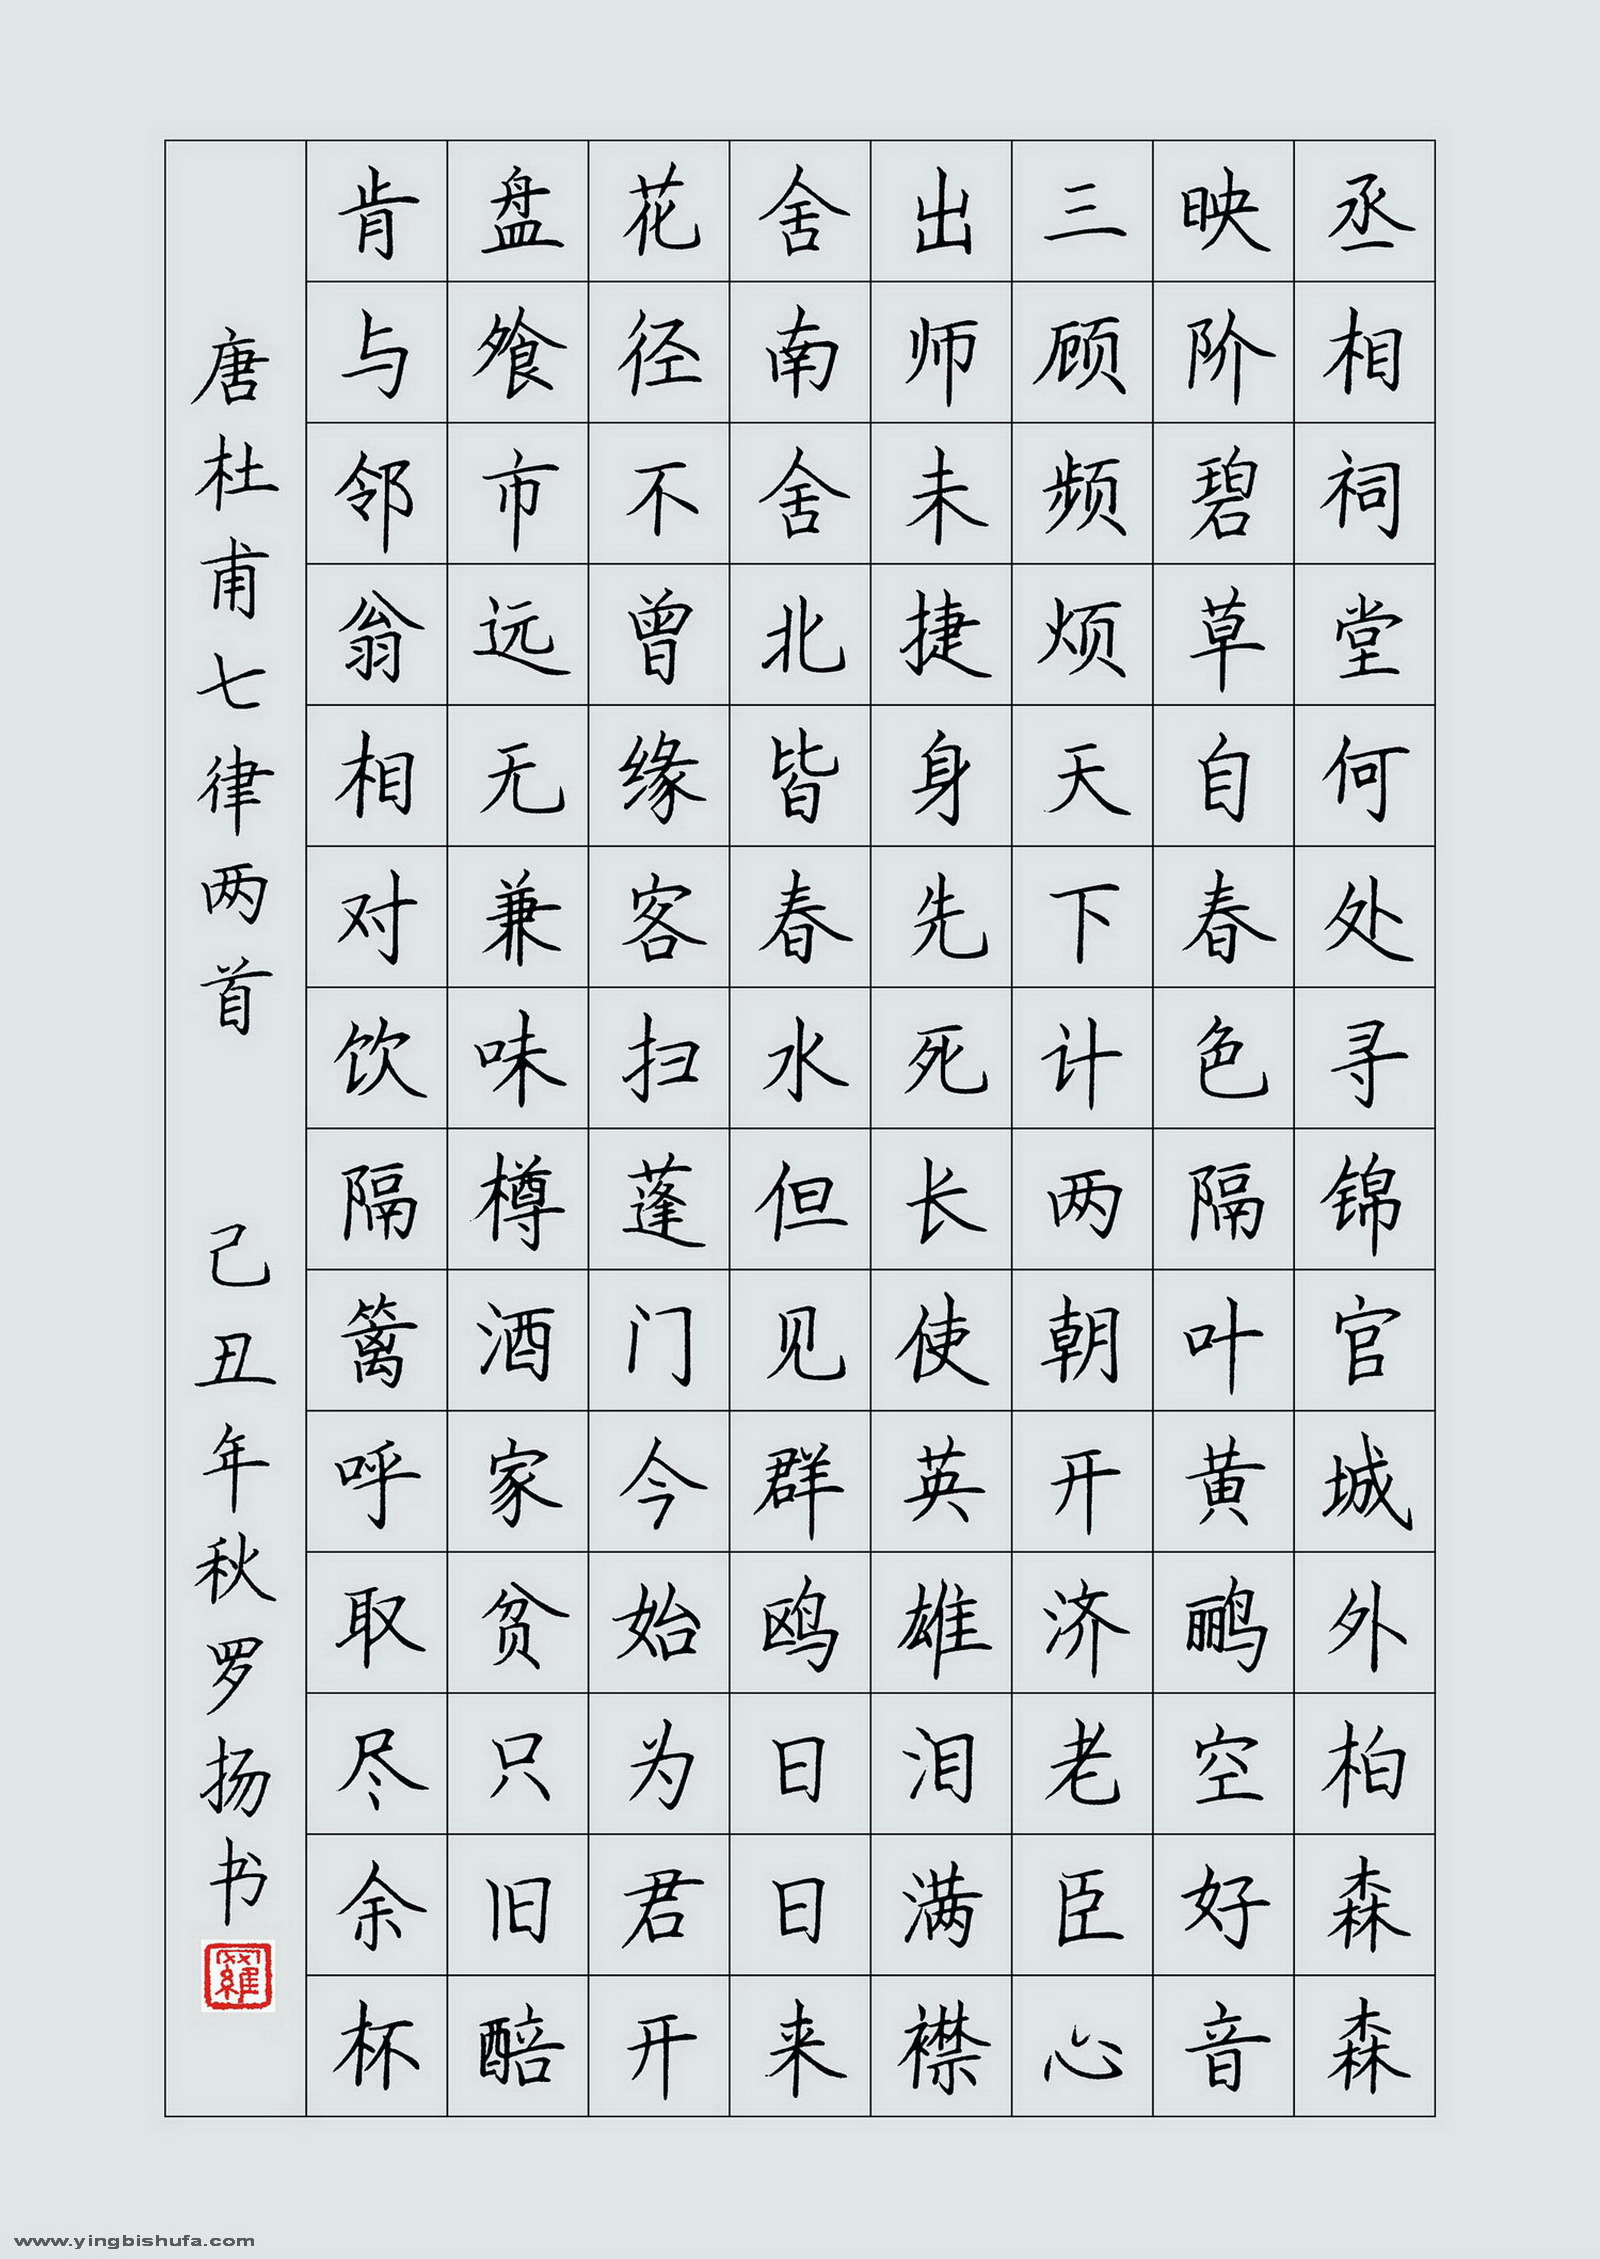 丞相祠堂何处寻锦官城外柏森森
映阶碧草自春色隔叶黄鹂空好音
三顾频烦天下计两朝开济老臣心
出师未捷身先死长使英雄泪满襟
舍南舍北皆春水但见群鸥日日来
花径不曾缘客扫蓬门今始为君开
盘飧市远无兼味樽酒家贫只旧醅
肯与邻翁相对饮隔篱呼取尽余杯
唐杜甫七律两首 己丑年秋罗扬书
羅
www.yingbishufa.com